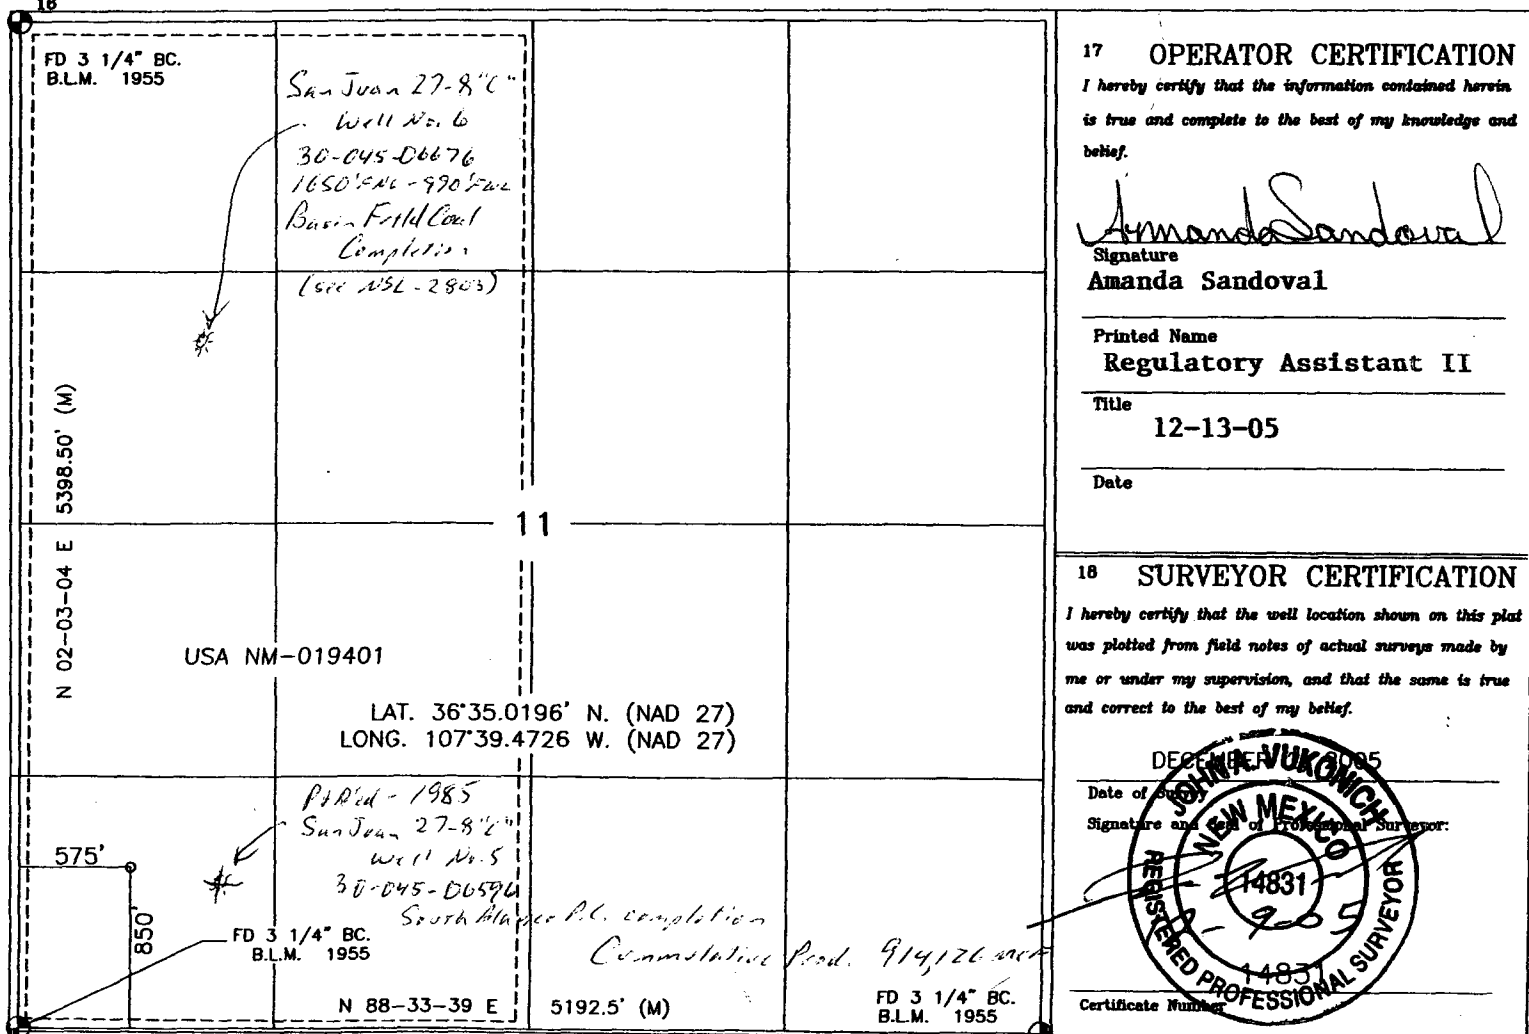 16
FD 3 1/4" BC.
B.L.M. 1955
San Juan 27-8 "C"
Well No. 6
30-045-06676
1650' FNL - 990' FWL
Basin Coal
Completion
(see NSL-2803)
N 02-03-04 E 5398.50' (M)
11
USA NM-019401
LAT. 36°35.0196' N. (NAD 27)
LONG. 107°39.4726 W. (NAD 27)
1985
San Juan 27-8 "C"
Well No. 5
30-045-06596
South P.C. completion
Cummulative Prod. 914,126 MCF
575'
850'
FD 3 1/4" BC.
B.L.M. 1955
N 88-33-39 E 5192.5' (M)
FD 3 1/4" BC.
B.L.M. 1955
17 OPERATOR CERTIFICATION
I hereby certify that the information contained herein
is true and complete to the best of my knowledge and
belief.
Amanda Sandoval
Signature
Amanda Sandoval
Printed Name
Regulatory Assistant II
Title
12-13-05
Date
18 SURVEYOR CERTIFICATION
I hereby certify that the well location shown on this plat
was plotted from field notes of actual surveys made by
me or under my supervision, and that the same is true
and correct to the best of my belief.
DECEMBER 2005
Date of Survey
Signature and Seal of Professional Surveyor:
JOHN A. VUKONICH
NEW MEXICO
14831
REGISTERED PROFESSIONAL SURVEYOR
14831
Certificate Number